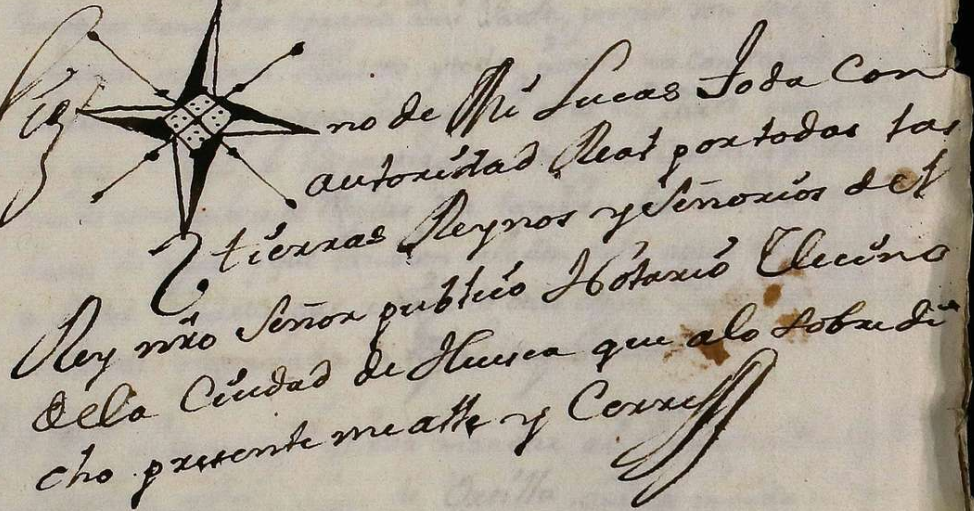 Sig no de Mi Lucas Joda Con
autoridad Real por todas las
tierras Reynos y Señorios del
Rey nro Señor publico Notario Vecino
dela Ciudad de Huesca que alo sobredi
cho presente me alle y Cerre